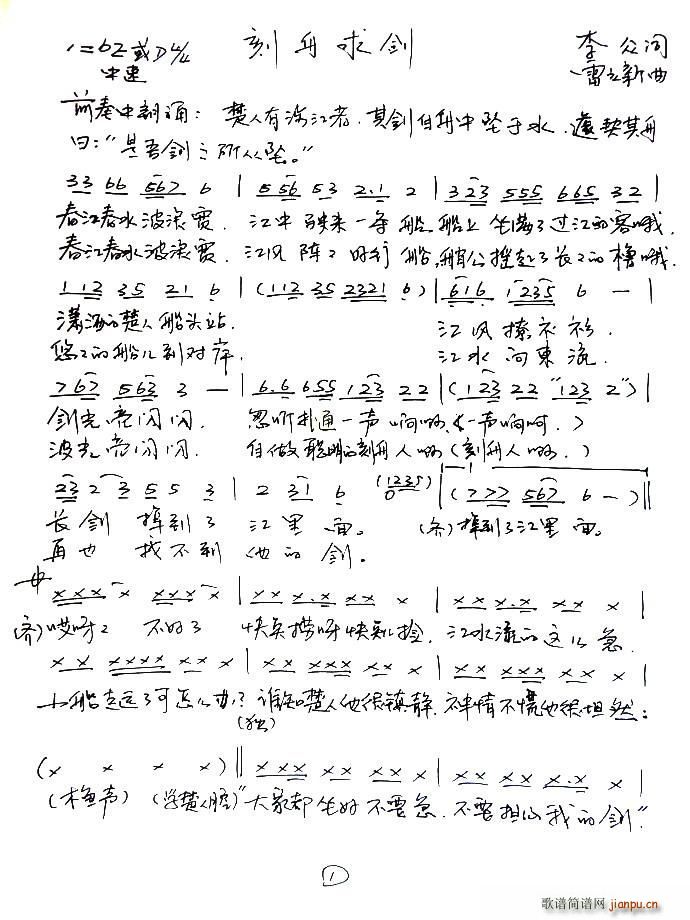 1=bE或D4/4 刻舟求剑 李众词
中速 雷立新曲
前奏中朗诵：楚人有涉江者，其剑自舟中坠于水，遽契其舟
曰："是吾剑之所从坠。"
33 66 567 6 | 5 56 53 2·1 2 | 323 555 665 32 |
春江春水波浪宽，江中驶来一条船，船上坐满了过江的客哦，
春江春水波浪宽，江风阵阵 船，艄公摇起了长长的橹哦，
112 35 21 6 | (112 35 2321 6) | 616 1235 6 — |
潇洒的楚人船头站， 江风撩衣衫，
悠悠的船儿到对岸， 江水向东流，
767 563 3 — | 6·6 655 123 22 | (123 22 "123 2") |
剑光亮闪闪， 忽听扑通一声响呦（一声响呵，）
波光亮闪闪， 自做聪明的刻舟人呦（刻舟人呦，）
23 2 3 5 5 3 | 2 31 6 (1235) 0 | (777 567 6 —) ‖
长剑 掉到了 江里面。 （齐）掉到了江里面。
再也 找不到 他的剑。
xxx x xxx x | xx x·x xx x | xx x·x xx x |
（齐）哎呀呀 不好了 快点捞呀快点捡，江水流的这么急，
xx xxxx xx x | xx xxx xx x | xx xxx xx x |
小船走远了可怎么办？谁知楚人他很镇静，神情不慌他很坦然：
（独）
(x x x x) ‖ xx xxx xx x | xx xxx x·x x |
（木鱼声）（学楚人腔）"大家都坐好不要急，不要担心我的剑"
1
歌谱简谱网
jianpu.cn